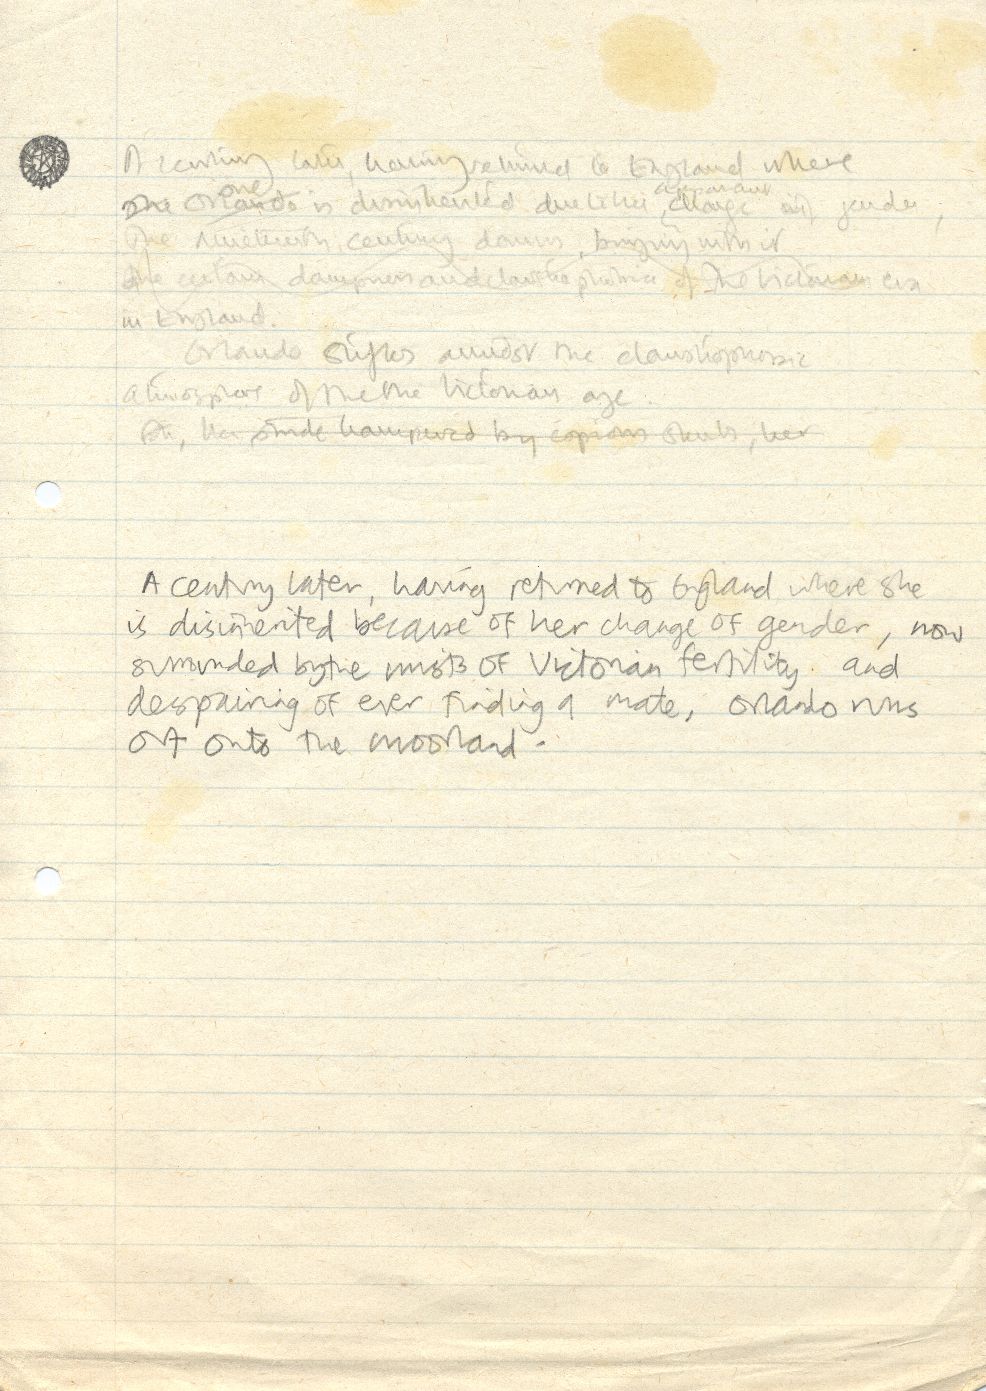 A century later, having returned to England where
she Orlando is disinherited due to her apparant change of gender,
the nineteenth century dawns, bringing with it
the certain dampness and claustrophobia of the Victorian era
in England.
Orlando stifles amidst the claustrophobic
atmosphere of the the Victorian age.
her stride hampered by copious skirts, her
A century later, having returned to England where she
is disinherited because of her change of gender, now
surrounded by the mists of Victorian fertility. and
despairing of ever finding a mate, Orlando runs
off onto the moorland.